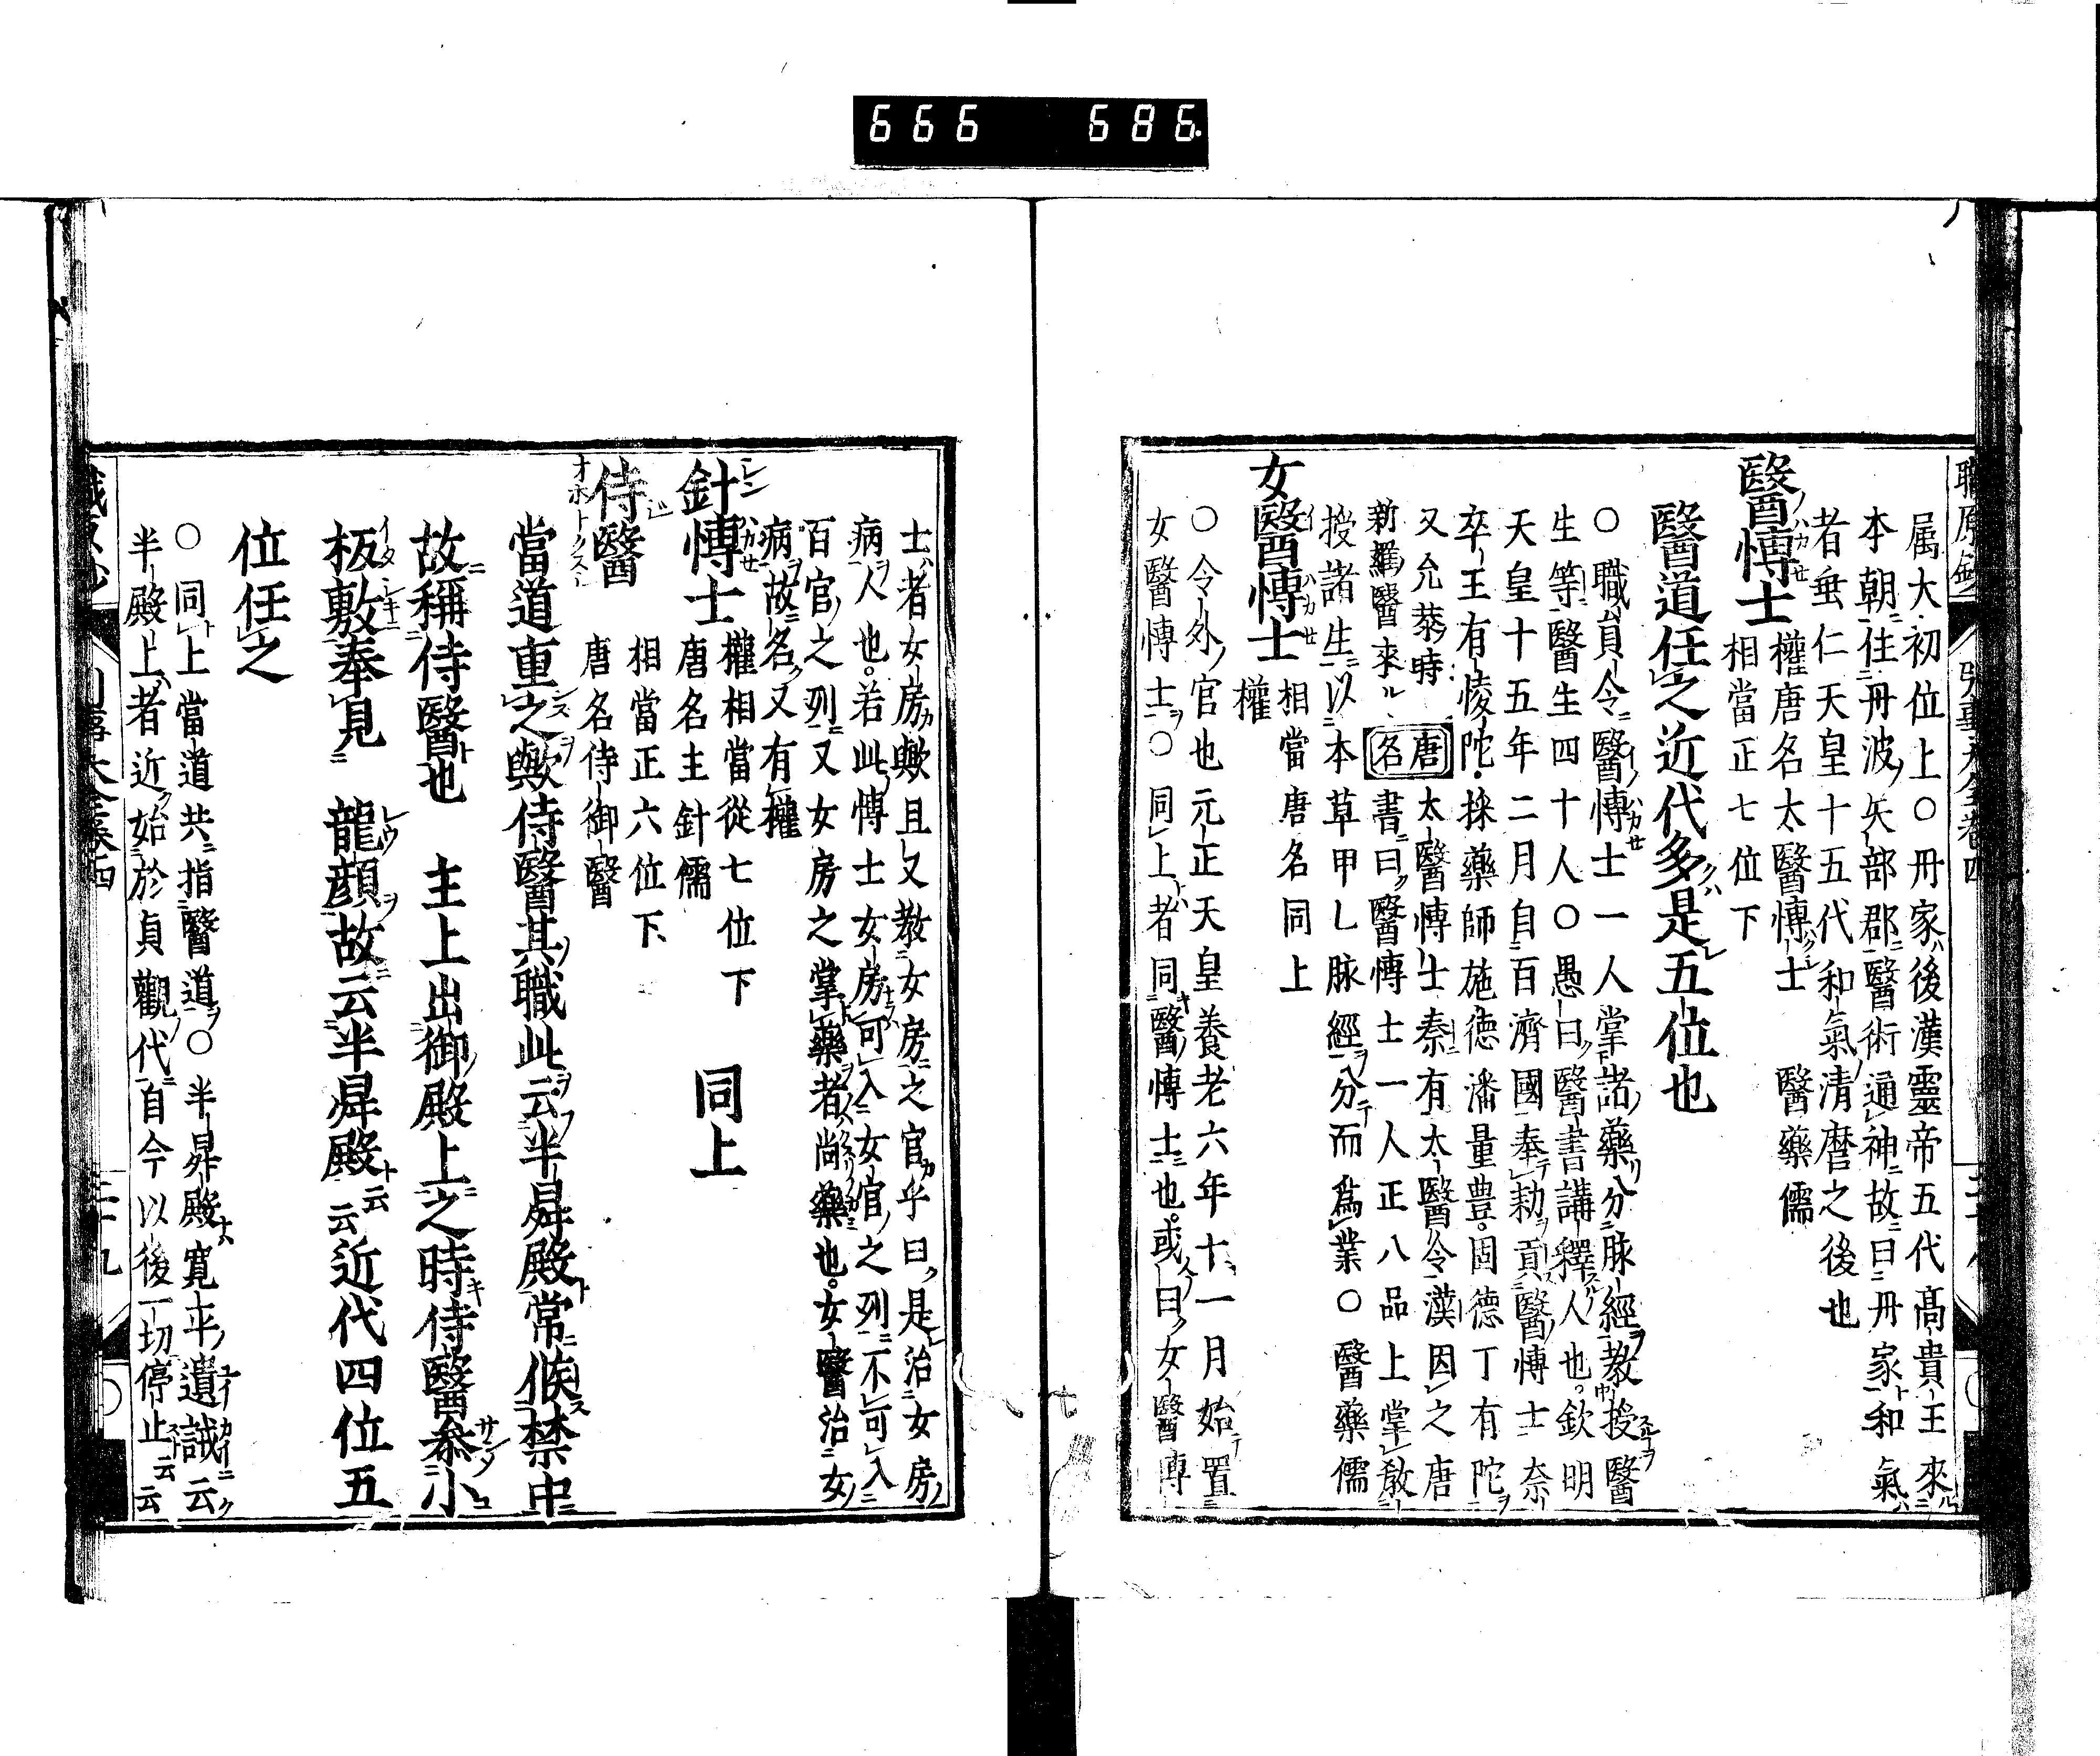 666 686
属大初位上○丹家後漢靈帝五代髙貴王來
本朝住丹波矢部郡醫術通神故曰丹家和氣
者垂仁天皇十五代和氣清麿之後也
醫博士
權唐名太醫博士 醫藥儒
相當正七位下
醫道任之近代多是五位也
○職員令醫博士一人掌諸藥分脉經教授醫
生等醫生四十人○愚曰醫書講釋人也欽明
天皇十五年二月自百濟國奉勅貢醫博士奈
卒王有㥄陀採藥師施德潘量豊固德丁有陀
又允恭時
新羅醫來
唐名
太醫博士秦有太醫令漢因之唐
書曰醫博士一人正八品上掌教
授諸生以本草甲乙脉經分而爲業○醫藥儒
女醫博士
相當唐名同上
權
○令外官也元正天皇養老六年十一月始置
女醫博士○同上者同醫博士也或曰女醫博
士者女房歟且又教女房之官乎曰是治女房
病人也若此博士女房可入女官之列不可入
百官之列又女房之掌藥者尚藥也女醫治女
病故名又有權
針博士
權相當從七位下 同上
唐名主針儒
侍醫
相當正六位下
唐名侍御醫
當道重之歟侍醫其職此云半昇殿常候禁中
故稱侍醫也 主上出御殿上之時侍醫參小
板敷奉見 龍顔故云半昇殿云云近代四位五
位任之
○同上當道共指醫道○半昇殿寛平遺誡云
半殿上者近始於貞觀代自今以後一切停止云云